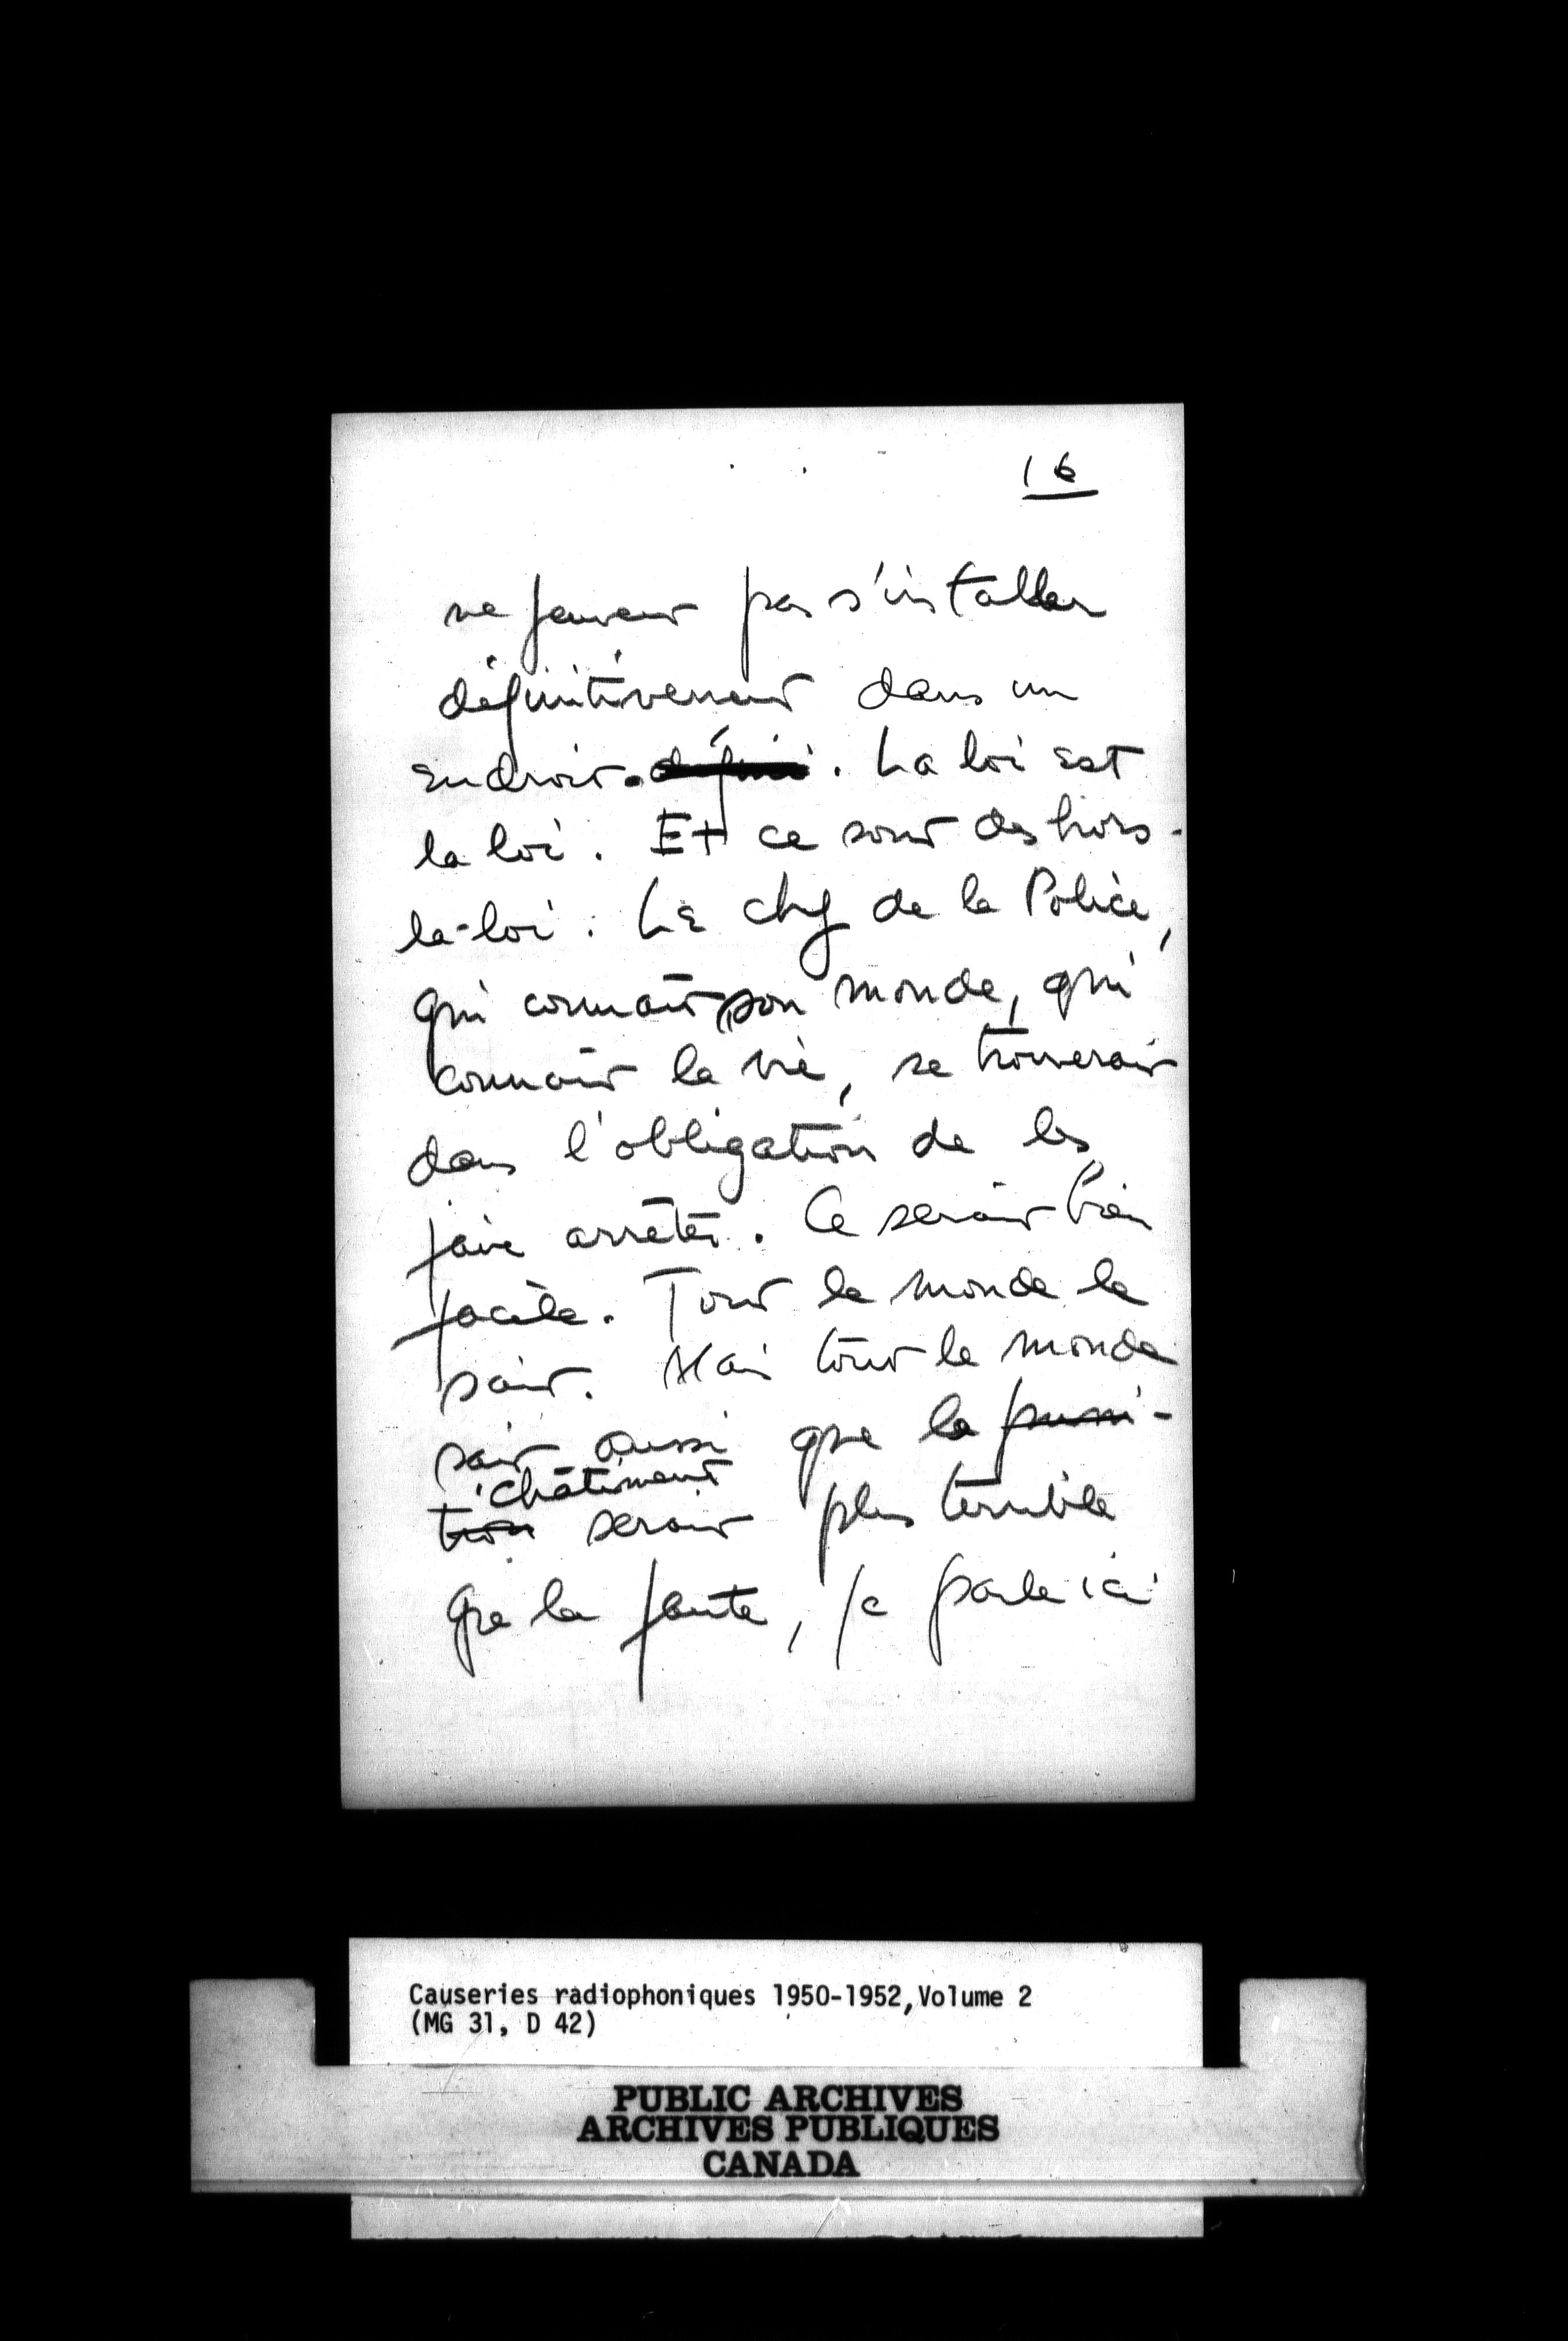 16
ne peuvent pas s'installer
définitivement dans un
endroit. défini. La loi est
la loi. Et ce sont des hors-
la-loi. Le chef de la Police,
qui connaît son monde, qui
connaît la vie, se trouverait
dans l'obligation de les
faire arrêter. Ce serait bien
facile. Tout le monde le
sait. Mais tout le monde
sait aussi que le puni-
châtiment
tion serait plus terrible
que la faute, je parle ici
Causeries radiophoniques 1950-1952, Volume 2
(MG 31, D 42)
PUBLIC ARCHIVES
ARCHIVES PUBLIQUES
CANADA